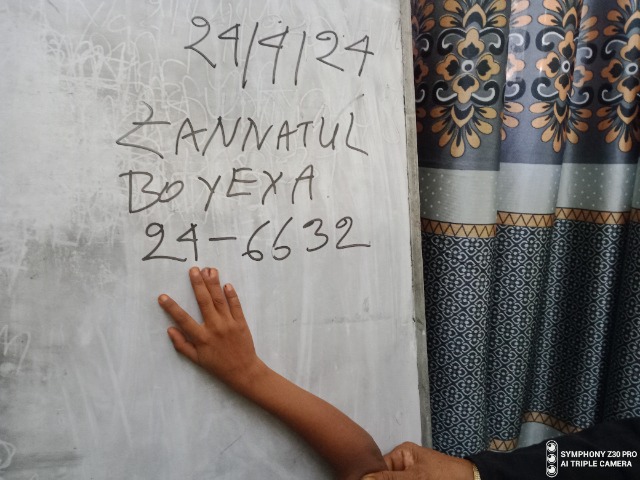 24/4/24
ZANNATUL
BOYEXA
24-6632
SYMPHONY Z30 PRO
AI TRIPLE CAMERA